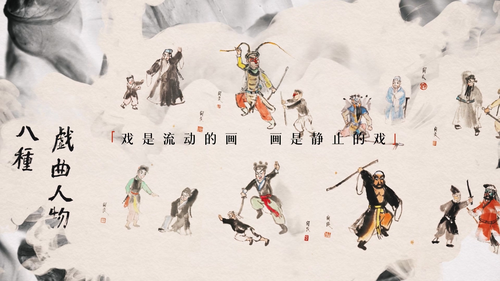 「戏是流动的画　画是静止的戏」
戲曲人物
八種